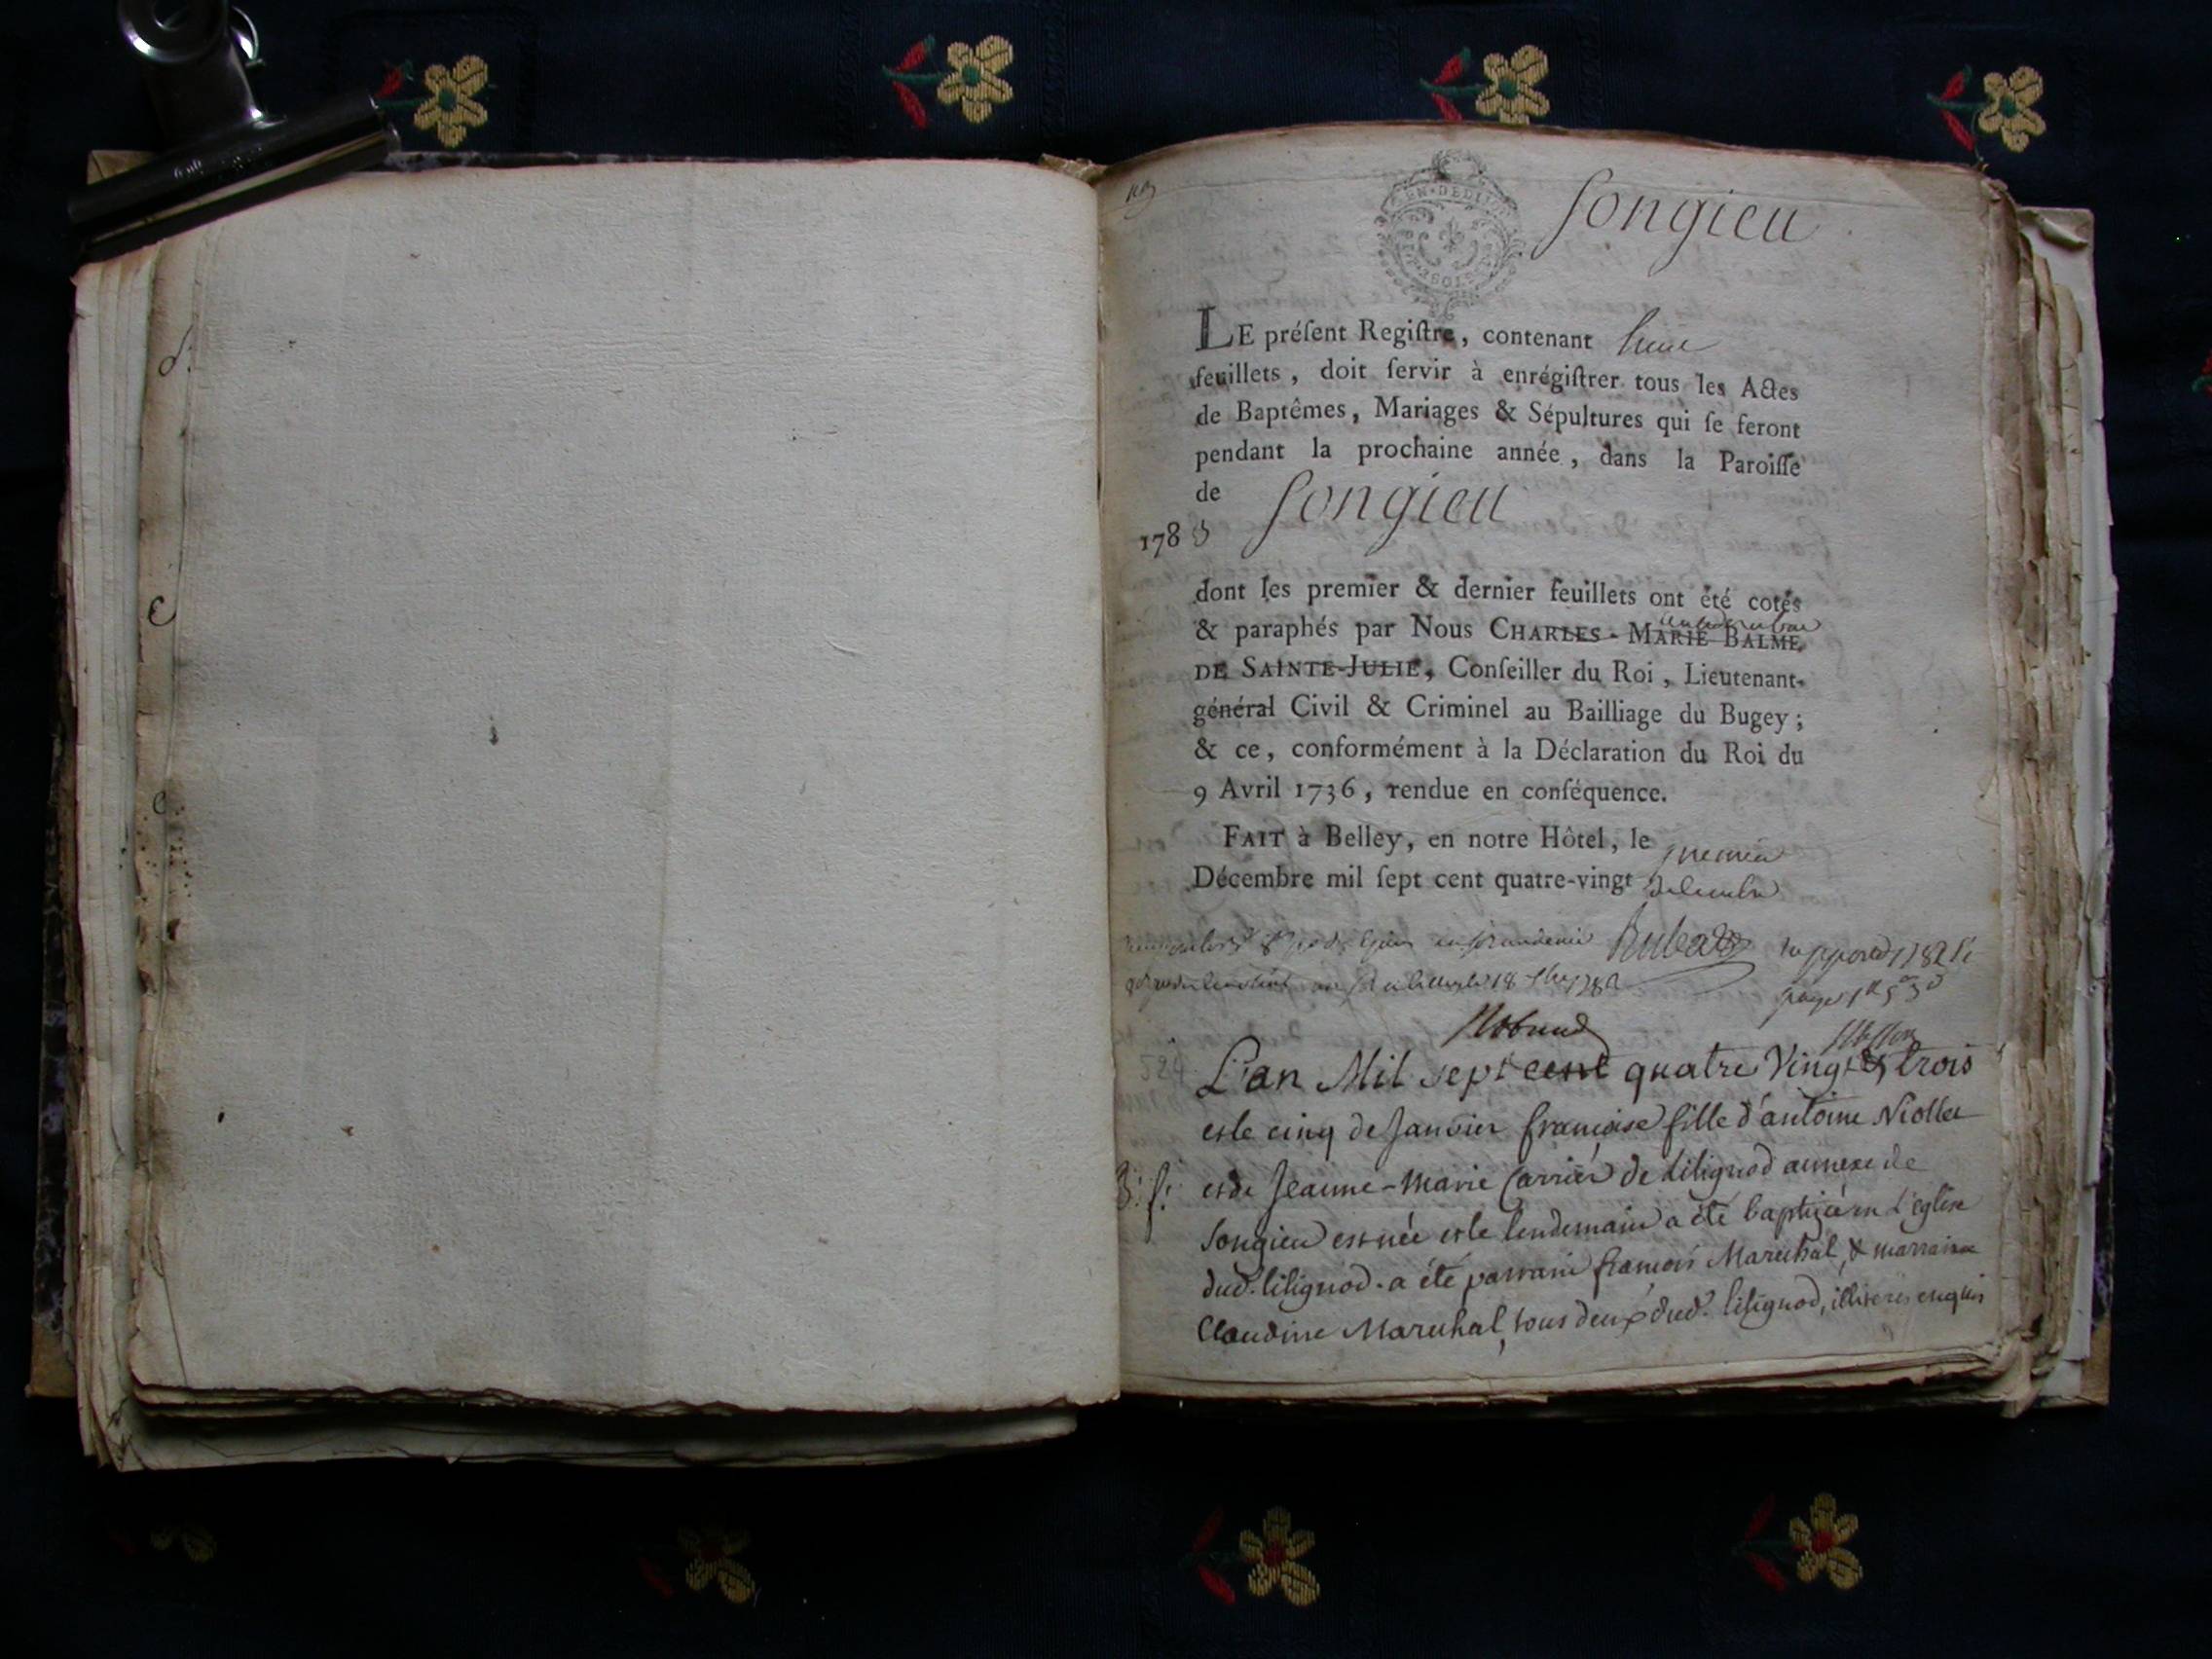 Songieu
LE préſent Regiſtre, contenant huit
feuillets, doit ſervir à enrégiſtrer tous les Actes
de Baptêmes, Mariages & Sépultures qui ſe feront
pendant la prochaine année, dans la Paroiſſe
de Songieu
1783
dont les premier & dernier feuillets ont été cotés
& paraphés par Nous CHARLES-MARIE BALME
DE SAINTE-JULIE, Conſeiller du Roi, Lieutenant-
général Civil & Criminel au Bailliage du Bugey;
& ce, conformément à la Déclaration du Roi du
9 Avril 1736, rendue en conſéquence.
FAIT à Belley, en notre Hôtel, le premier
Décembre mil ſept cent quatre-vingt
L'an Mil sept cent quatre Vingt trois
et le cinq de Janvier françoise fille d'antoine Niollet
B: f: et de Jeanne-Marie Carrier de lilignod annexe de
Songieu est née et le lendemain a été baptizée en L'église
dud. lilignod. a été parrain françois Marechal, & marraine
Claudine Marechal, tous deux dud. lilignod, illiterés enquis